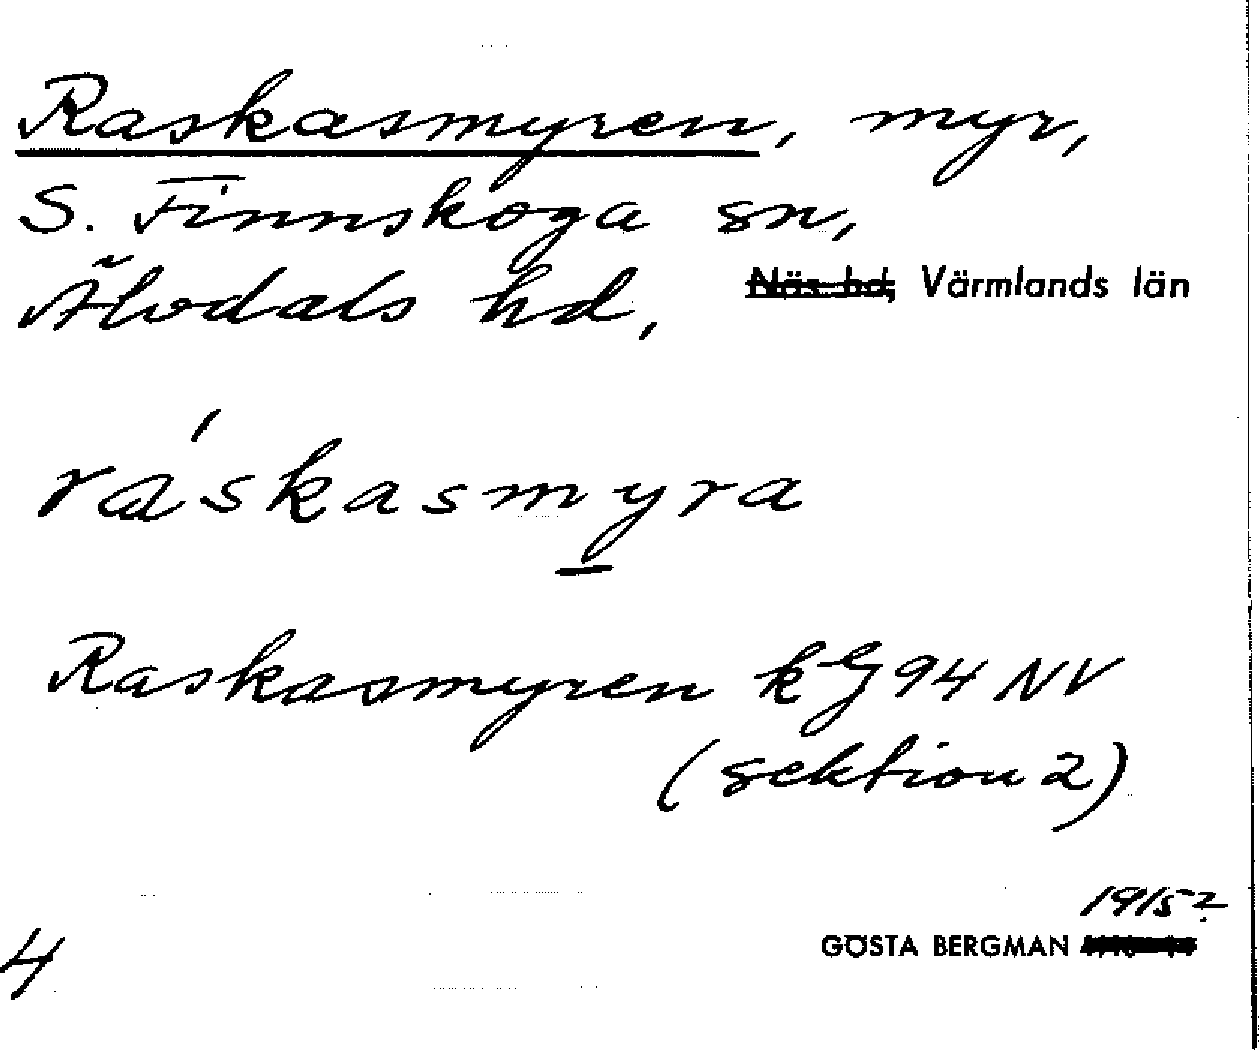 Raskasmyren, myr,
S. Finnskoga sn,
Älvdals hd, Näs hd, Värmlands län
ráskasmyra
Raskasmyren kG 94 NV
(sektion 2)
1915?
GÖSTA BERGMAN
4